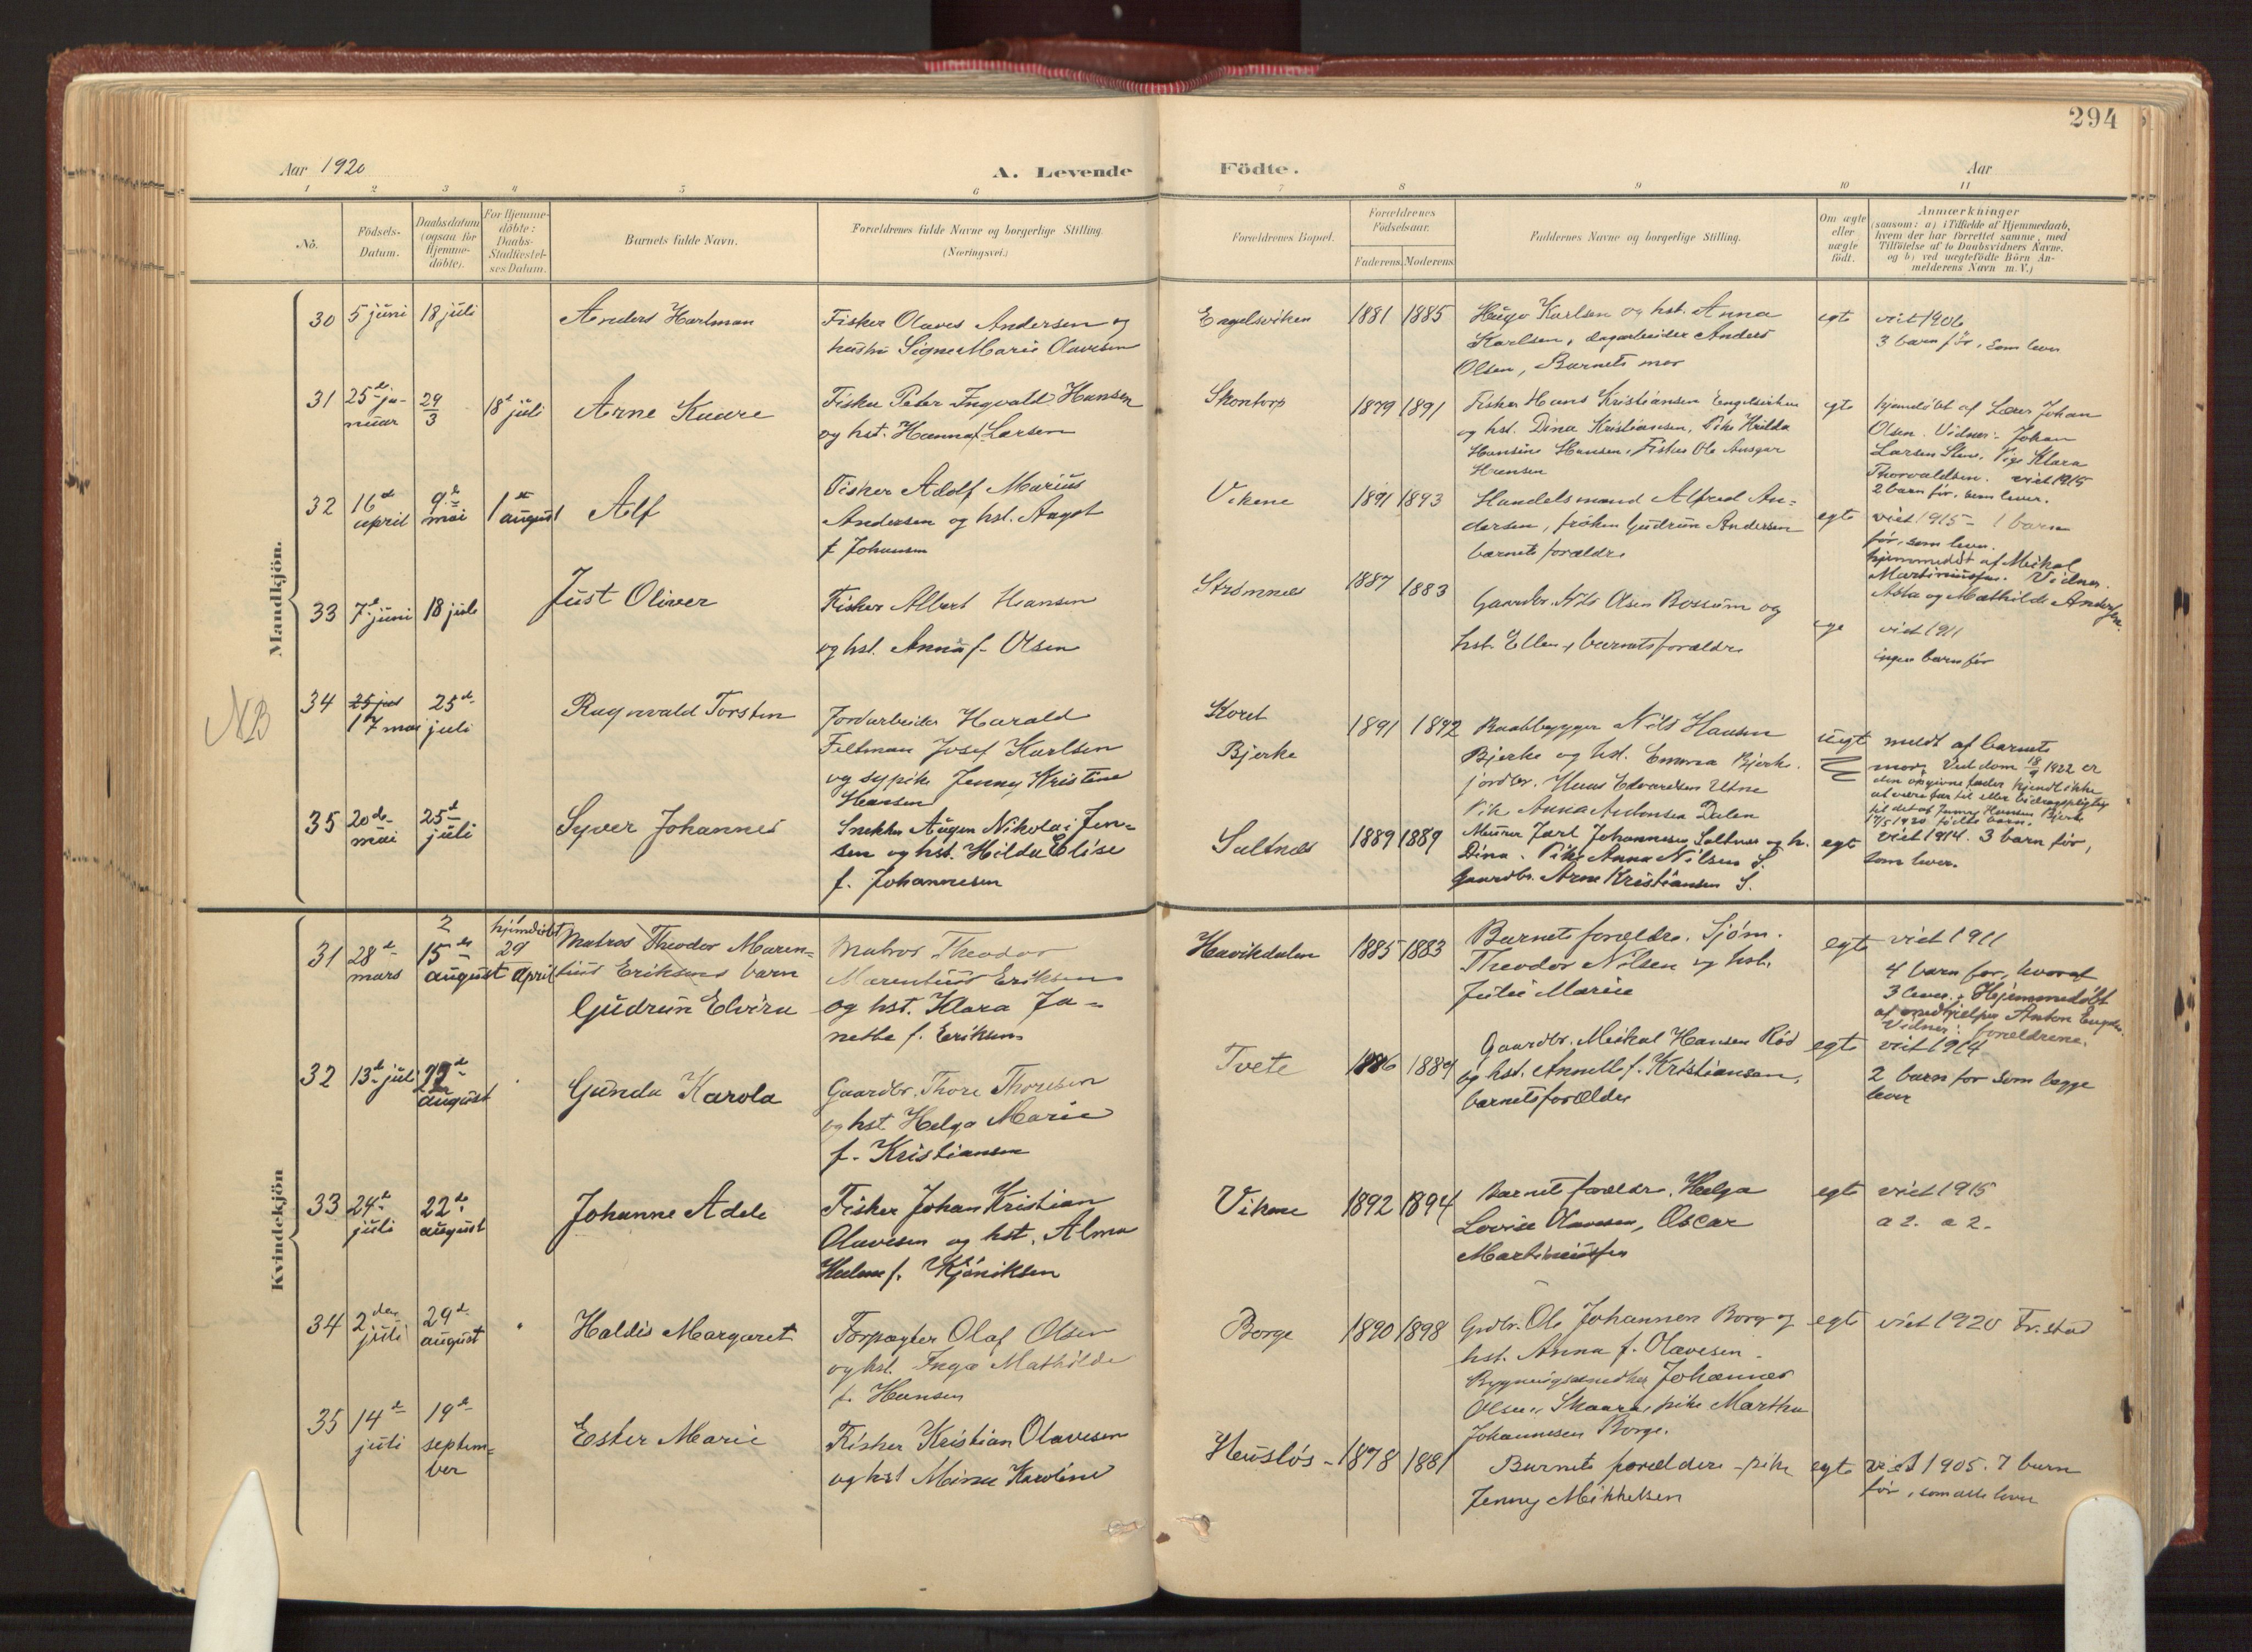 294
Aar 1920
A. Levende
Födte.
Aar
1 2 3 4 5 6 7 8 9 10 11
No.
Födsels-
Datum.
Daabsdatum
(ogsaa for
Hjemme-
döbte).
For Hjemme-
döbte:
Daabs-
Stadfæstel-
ses Datum.
Barnets fulde Navn.
Forældrenes fulde Navne og borgerlige Stilling.
(Næringsvei.)
Forældrenes Bopæl.
Forældrenes
Födselsaar.
Faderens. Moderens.
Faddernes Navne og borgerlige Stilling.
Om ægte
eller
uægte
födt.
Anmærkninger
(saasom: a) i Tilfælde af Hjemmedaab,
hvem der har forrettet samme, med
Tilföielse af to Daabsvidners Navne.
og b) ved uægtefödte Börn An-
melderens Navn m. V.)
Mandkjön.
30
5 juni
18 juli
Anders Hartman
Fisker Olaves Andersen og
hustru Signe Marie Olavesen
Engelsviken
1881 1885
Hugo Karlsen og hst. Anna
Karlsen, dagarbeider Anders
Olsen, Barnets mor
egte
viet 1906
3 barn før, som lever
31
25de ja-
nuar
29/3
18de juli
Arne Kaare
Fisker Peter Ingvald Hansen
og hst. Hanna f. Larsen
Skontorp
1879 1891
Fisker Hans Kristiansen Engelsviken
og hst. Dina Kristiansen, Pike Hilda
Hansine Hansen, Fisker Ole Ansgar
Hansen
egte
hjemdøbt af Lærer Johan
Olsen. Vidner: Johan
Larsen Sten, Pige Klara
Thorvaldsen. viet 1915
2 barn før, som lever.
32
16de
april
9de
mai
1ste
august
Alf
Fisker Adolf Marius
Andersen og hst. Aagot
f. Johansen
Vikene
1891 1893
Handelsmand Alfred An-
dersen, frøken Gudrun Andersen
barnets forældre
egte
viet 1915 - 1 barn
før, som lever.
hjemmedøbt af Meikal
Martiniussen. Vidner.
Asta og Mathilde Andersen.
33
7de juni
18 juli
Just Oliver
Fisker Albert Hansen
og hst. Anna f. Olsen
Strømnes
1887 1883
Gaardbr. Nils Olsen Bossum og
hst. Ellen, barnets forældre
viet 1911
ingen barn før
NB
34
25 juni
17 mai
25de
juli
Ragnvald Torsten
Jordarbeider Harald
Feltman Josef Karlsen
og sypike Jenny Kristine
Hansen
Bjerke
1891 1892
Baatbygger Nils Hansen
Bjerke og hst. Emma Bjerke.
jordbr. Hans Edvardsen Utne
Pike Anna Antonsen Dalen
uegt
meldt af barnets
mor. Ved dom 18/9 1922 er
den opgivne fader kjendt ikke
at være far til eller bidragspligtig
til det af Jenny Hansen Bjerke
17/5 1920 fødte barn.
35
20de
mai
25de
juli
Syver Johannes
Snekker Augen Nikolai Jen-
sen og hst. Hilda Elise
f. Johannesen
Saltnes
1889 1889
Murer Jarl Johannesen Saltnes og h.
Dina. Pike Anna Nilsen S.
Gaardbr. Arne Kristiansen S.
egt
viet 1914. 3 barn før,
som lever.
Kvindekjön
31
28de
mars
2
15de
august
hjemdøbt
29
april
Matros Theodor Maren-
tius Eriksens barn
Gudrun Elvira
Matros Theodor
Marentius Eriksen
og hst. Klara Ja-
nette f. Eriksen
Haavikdalen
1885 1883
Barnets forældre. Sjøm.
Theodor Nilsen og hst.
Julie Marie
egte
viet 1911
4 barn før, hvoraf
3 lever. Hjemmedøbt
af nødhjelper Anton
Vidner: forældrene.
32
13de juli
august
Gunda Karola
Gaardbr. Thore Thoresen
og hst Helga Marie
f. Kristiansen
Tvete
1886 1889
Gaardbr. Meikal Hansen Rød
og hst. Annette f. Kristiansen,
barnets forældre
egte
viet 1914
2 barn før som begge
lever
33
24de
juli
22de
august
Johanne Adele
Fisker Johan Kristian
Olavesen og hst. Alma
Helene f. Kjøniksen
Vikene
1892 1894
Barnets forældre, Helga
Lovise Olavesen, Oscar
Martiniussen
egte
viet 1915
a 2. a 2.
34
2den
juli
29de
august
Haldis Margaret
Forpagter Olaf Olsen
og hst. Inga Mathilde
f. Hansen
Borge
1890 1898
Grdbr. Ole Johannesen Borge og
hst. Anna f. Olavesen.
Bygningssnedker Johannes
Olsen Skaare, pike Martha
Johannesen Borge.
egte
viet 1920 Fr.stad
35
14de
juli
19de
septem-
ber
Ester Marie
Fisker Kristian Olavesen
og hst Mina Karoline
Husløs
1878 1881
Barnets forældre - pike
Jenny Mikkelsen
egte
viet 1905. 7 barn
før, som alle lever